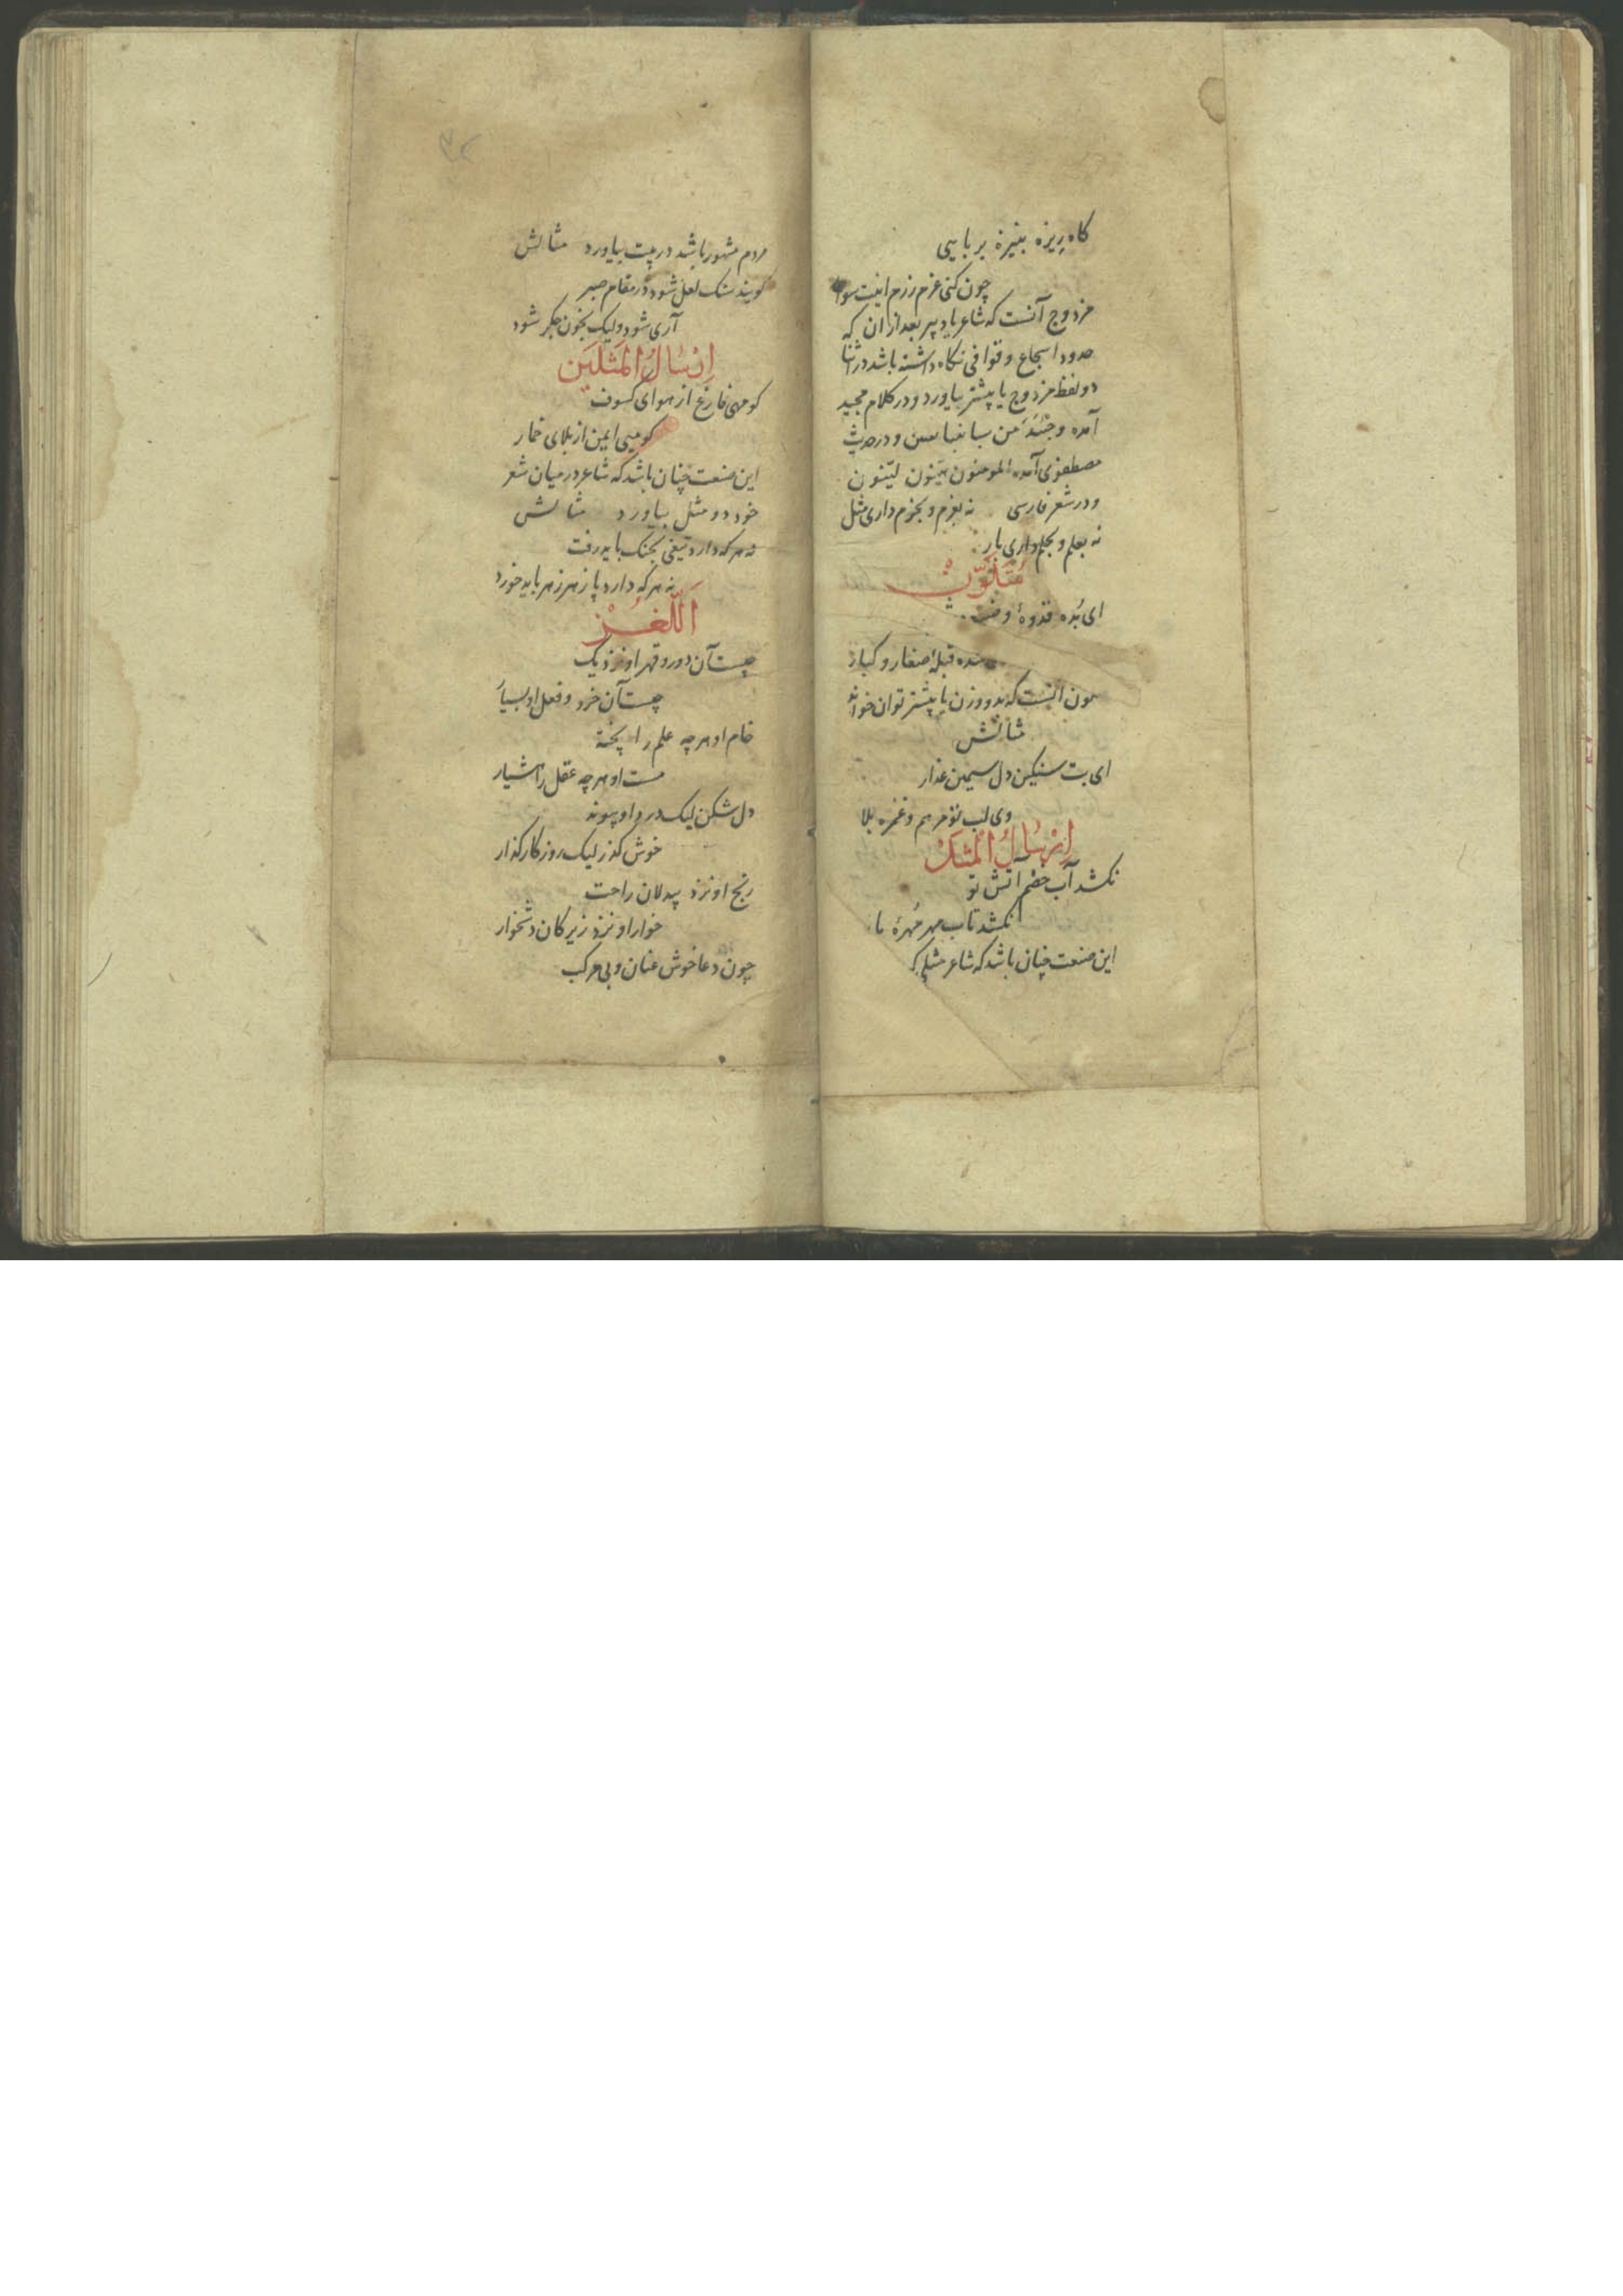 کاه ریزه بنیزه بر بایی
چون کنی عزم رزم اینت سوار
مزدوج آنست که شاعر یا دبیر بعد از آن که
حدود اسجاع و قوافی نکاه داشته باشد در اثنا
دو لفظ مزدوج یا پیشتر بیاورد و در کلام مجید
آمده وجئتک من سبا بنبا یقین و در حدیث
مصطفوی آمده المومنون هینون لینون
و در شعر فارسی نه بعزم و بحزم داری مثل
نه بعلم و بحلم داری یار
متلون
ای بده قدوهٔ
شده قبلهٔ صغار و کبار
آنست که بدو وزن یا پیشتر توان خواند
مثالش
ای بت سنکین دل سیمین عذار
وی لب تو مرهم و غمزه بلا
ارسال المثل
نکشد آب خصم آتش تو
نکشد تاب مهر مهرهٔ ما
این صنعت چنان باشد که شاعر مثلی که
۳۲
مردم مشهور باشد در بیت بیاورد مثالش
کویند سنک لعل شود در مقام صبر
آری شود ولیک بخون جکر شود
ارسال المثلین
کو مهی فارغ از هوای کسوف
کو میی ایمن از بلای خمار
این صنعت چنان باشد که شاعر در میان شعر
خود دو مثل بیاورد مثالش
نه هر که دارد تیغی بجنک باید رفت
نه هر که دارد پازهر زهر باید خورد
اللغز
چیست آن دور و قهر او نزدیک
چیست آن خرد و فعل او بسیار
خام او هر چه علم را پخته
مست او هر چه عقل را هشیار
دل شکن لیک درد را پیوند
خوش کذر لیک روزکار کذار
رنج او نزد بیدلان راحت
خوار او نزد زیرکان دشخوار
چون دعا خوش عنان و بی مرکب